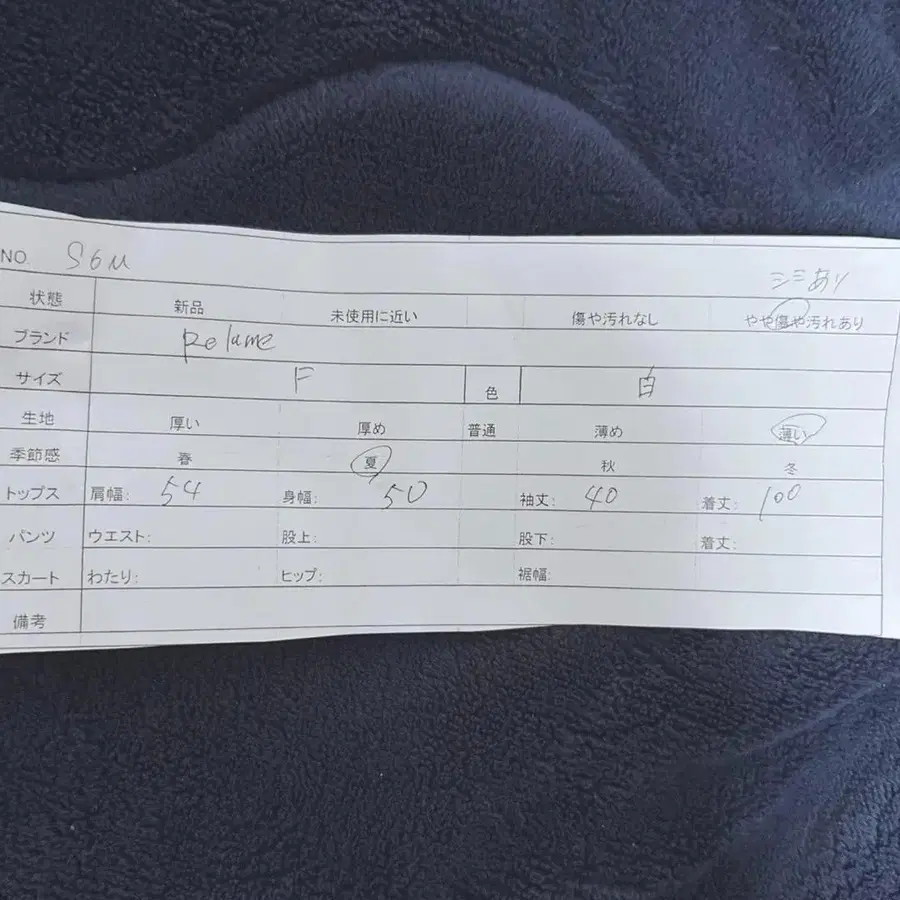 NO. S6u
シミあり
状態 新品 未使用に近い 傷や汚れなし やや傷や汚れあり
ブランド Relume
サイズ F 色 白
生地 厚い 厚め 普通 薄め 薄い
季節感 春 夏 秋 冬
トップス 肩幅: 54 身幅: 50 袖丈: 40 着丈: 100
パンツ ウエスト: 股上: 股下: 着丈:
スカート わたり: ヒップ: 裾幅:
備考